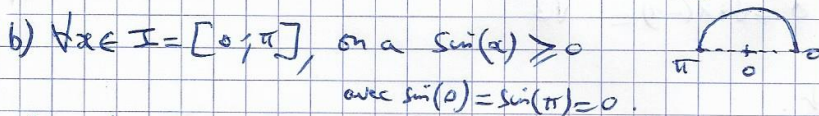 b) ∀x ∈ I = [0;π], on a sin(x) ≥ 0
avec sin(0) = sin(π) = 0.
π 0 0